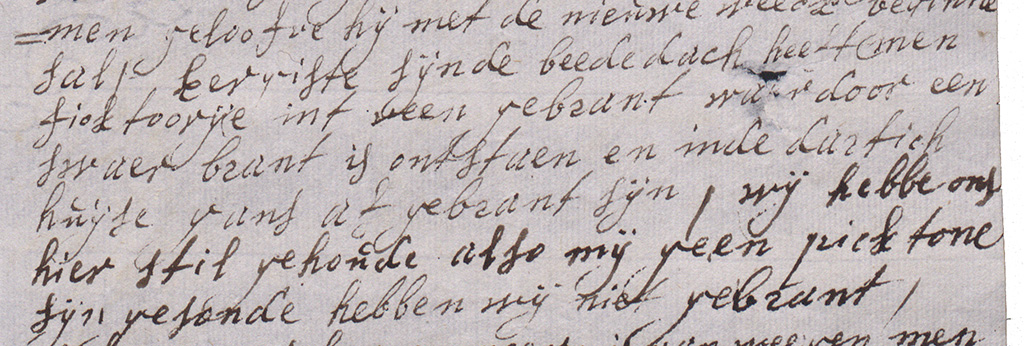 =men geloofve hij met de nieuwe weeck beginne
sal / Eergiste sijnde beededach heeft men
ficktoorije int veen gebrant waerdoor een
swaer brant is ontstaen en inde dartich
huijse gans af gebrant sijn / wij hebbe ons
hier stil gehoude also mij geen pick tone
sijn gesonde hebben wij niet gebrant /
men